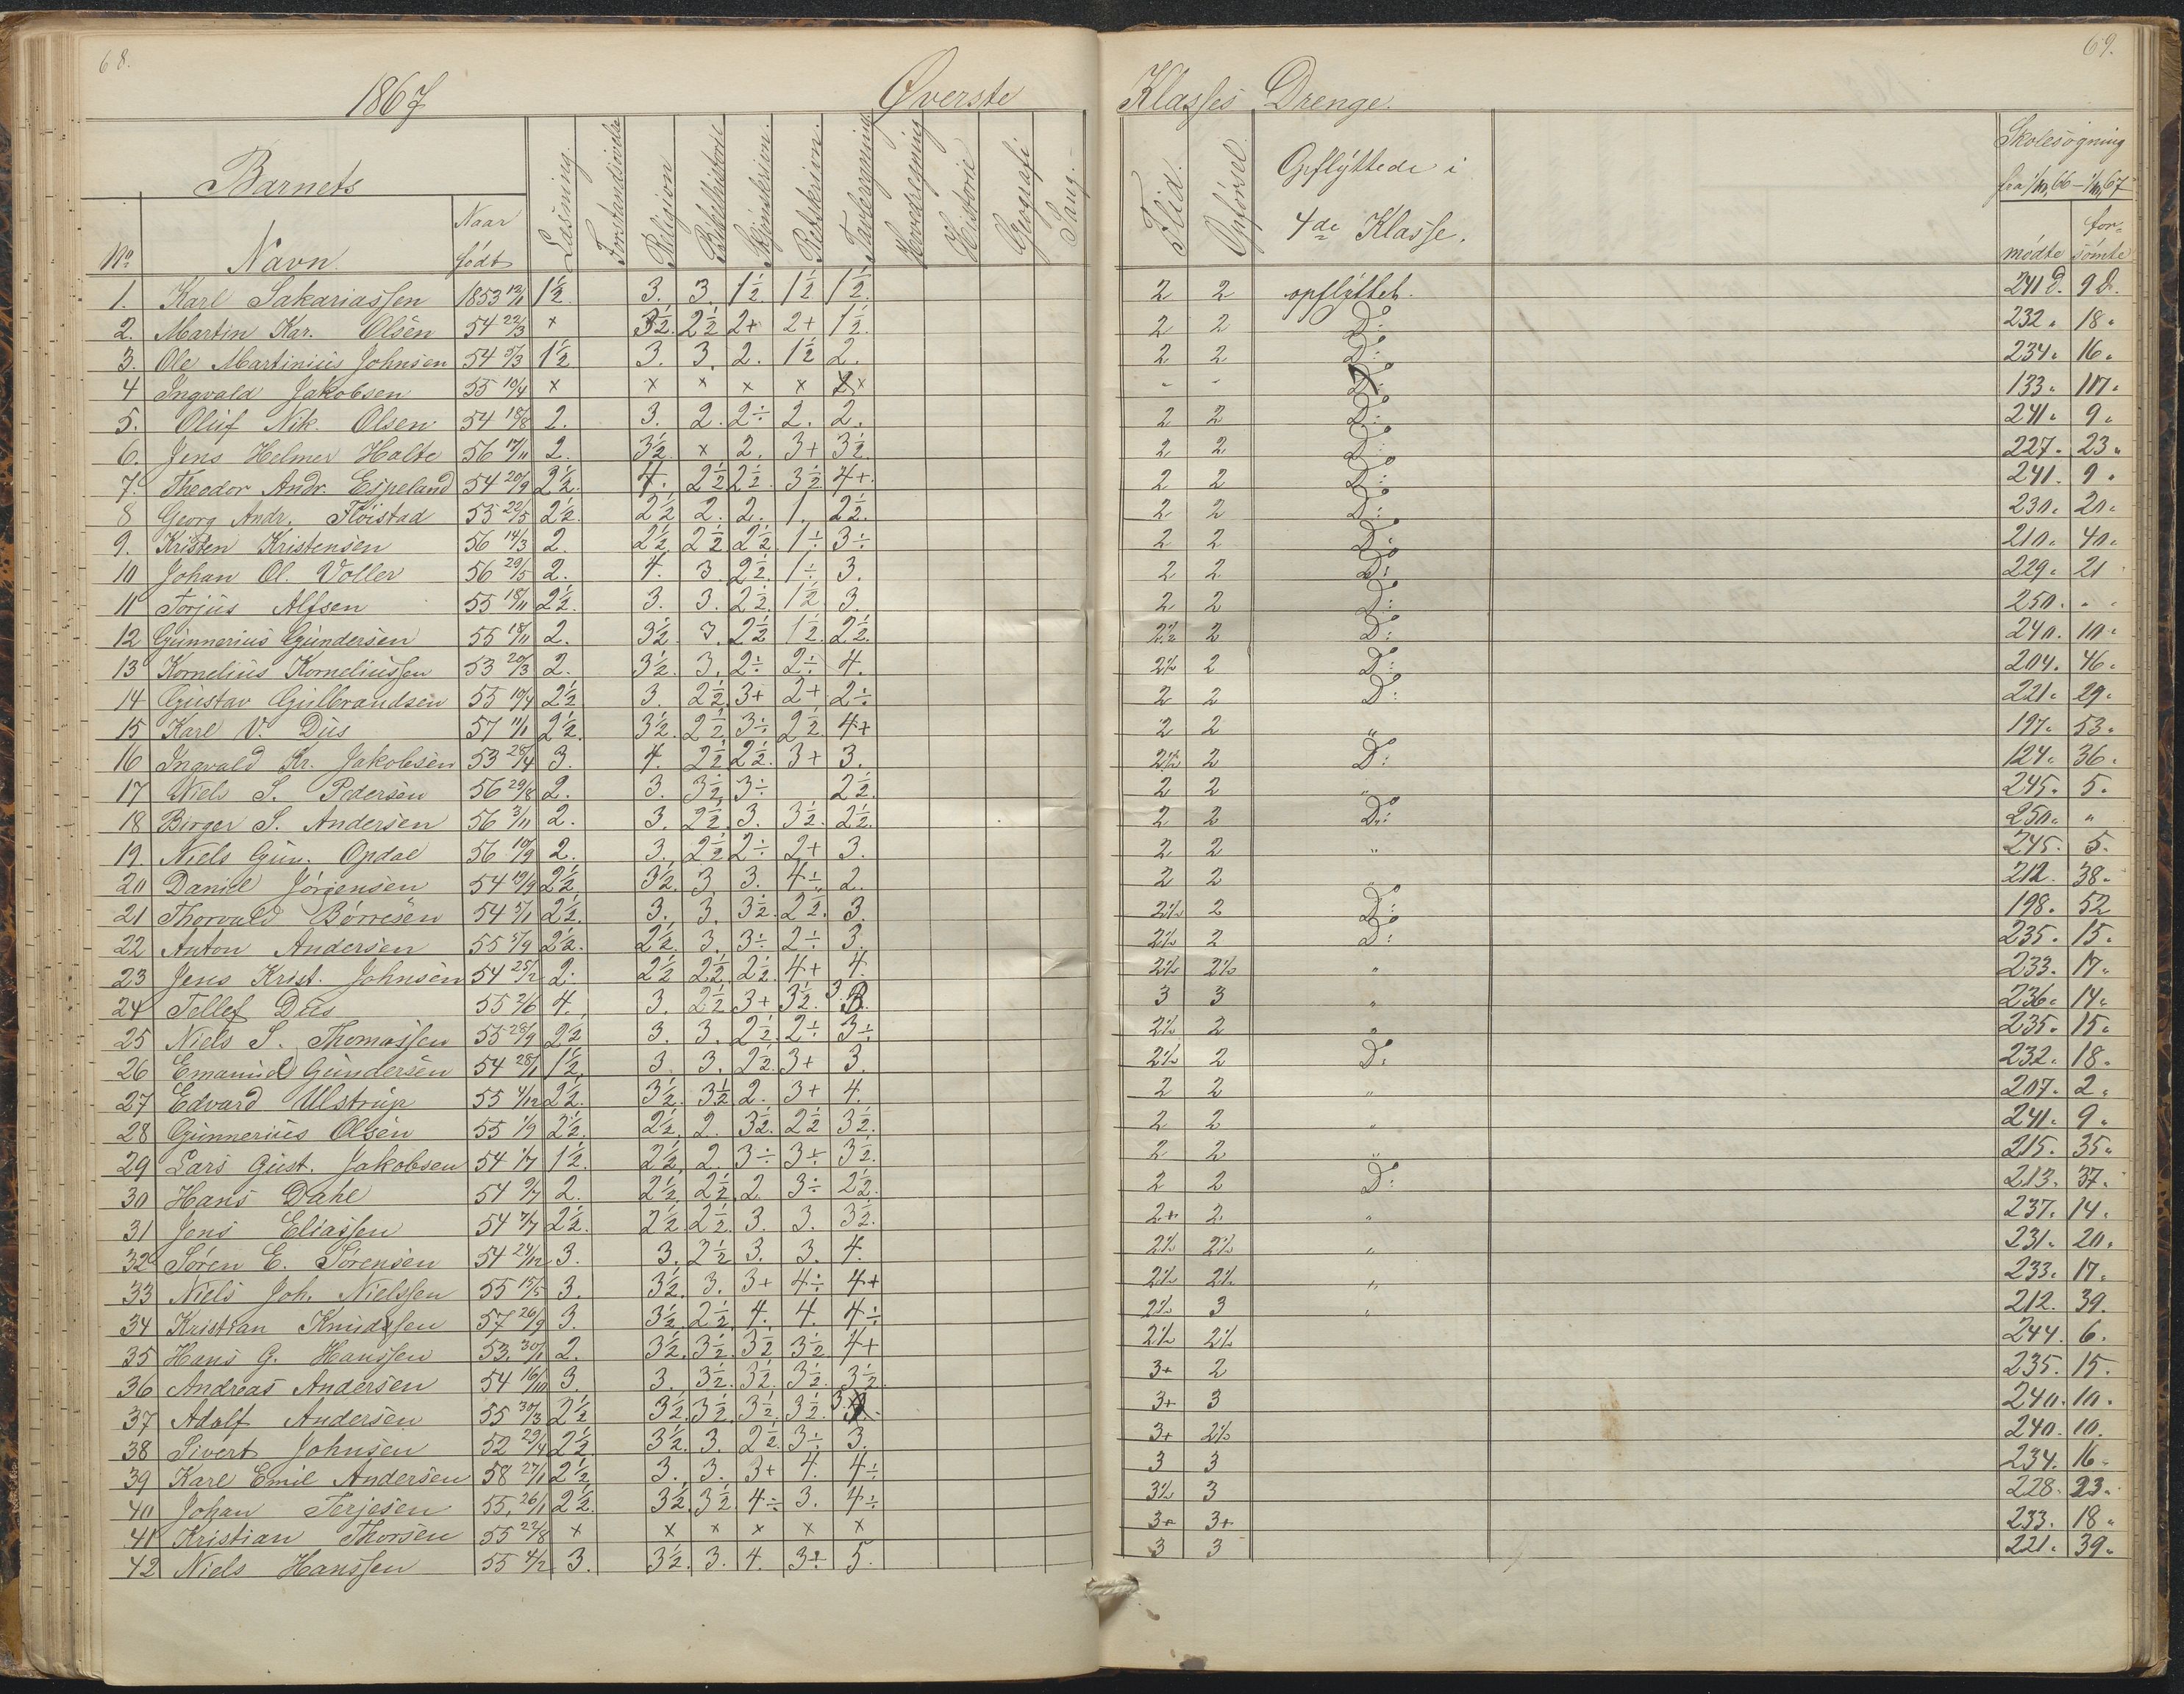 68.
1867
Øverste
Barnets
No
Navn
Naar født
Læsning.
Forstandsøvelse
Religion
Bibelhistorie
Skjønskrivn.
Retskrivn.
Tavleregning.
Hovedregning
Historie
Geografi
Sang.
1. Karl Sakariassen 1853 12/11 1½ 3. 3. 1½ 1½ 1½.
2. Martin Kar. Olsen 54 22/3 x 3½. 2½ 2+ 2+ 1½.
3. Ole Martinius Johnsen 54 5/3 1½ 3. 3. 2. 1½ 2.
4 Ingvald Jakobsen 55 10/4 x x x x x x
5. Oluf Nik. Olsen 54 18/8 2. 3. 2. 2÷ 2. 2.
6. Jens Helmer Holte 56 17/11 2. 3½. x 2. 3+ 3½.
7. Theodor Andr. Espeland 54 20/9 2½. 4. 2½ 2½. 3½ 4+.
8 Georg Andr. Fløistad 55 22/5 2½. 2½ 2. 2. 1. 2½.
9. Kristen Kristensen 56 14/3 2. 2½. 2½ 2½. 1÷ 3÷
10 Johan Ol. Voller 56 29/5 2. 4. 3. 2½. 1÷ 3.
11 Torjus Alfsen 55 18/11 2½. 3. 3. 2½. 1½ 3.
12 Gunnerius Gundersen 55 18/11 2. 3½. 3. 2½ 1½. 2½.
13 Kornelius Korneliussen 53 20/3 2. 3½. 3. 2÷ 2÷ 4.
14 Gustav Gulbrandsen 55 10/4 2½ 3. 2½. 3+ 2+ 2÷
15 Karl V. Dus 57 11/1 2½. 3½. 2½ 3÷ 2½ 4+
16 Ingvald Kr. Jakobsen 53 28/4 3. 4. 2½ 2½. 3+ 3.
17 Niels S. Pedersen 56 29/8 2. 3. 3½ 3÷ 2½.
18 Birger S. Andersen 56 3/11 2. 3. 2½. 3. 3½. 2½.
19. Niels Gun. Opdal 56 10/9 2. 3. 2½ 2÷ 2+ 3.
20 Daniel Jørgensen 54 19/9 2½ 3½. 3. 3. 4÷ 2.
21 Thorvald Børresen 54 5/1 2½. 3. 3. 3½. 2½. 3.
22 Anton Andersen 55 5/9 2½. 2½. 3. 3÷ 2÷ 3.
23 Jens Krist. Johnsen 54 25/12 2. 2½ 2½. 2½. 4+ 4.
24 Tellef Dus 55 2/6 4. 3. 2½ 3+ 3½. 3.
25 Niels S. Thomassen 55 28/9 2½ 3. 3. 2½. 2÷ 3÷
26 Emanuel Gundersen 54 28/1 1½. 3. 3. 2½. 3+ 3.
27 Edvard Ulstrup 55 4/12 2½. 3½. 3½ 2. 3+ 4.
28 Gunnerius Olsen 55 1/9 2½. 2½. 2. 3½. 2½ 3½.
29 Lars Gust. Jakobsen 54 1/7 1½. 2½. 2. 3÷ 3÷ 3½.
30 Hans Dahl 54 9/7 2. 2½. 2½. 2 3÷ 2½.
31 Jens Eliassen 54 7/7 2½. 2½. 2½. 3. 3. 3½.
32 Søren E. Sørensen 54 24/12 3. 3. 2½ 3. 3. 4.
33 Niels Joh. Nielssen 55 15/5 3. 3½. 3. 3+ 4÷ 4+
34 Kristian Knudssen 57 26/9 3. 3½. 2½. 4. 4. 4÷
35 Hans G. Hanssen 53. 30/1 2. 3½. 3½. 3½ 3½. 4+
36 Andreas Andersen 54 16/10 3. 3. 3½. 3½. 3½. 3½.
37 Adolf Andersen 55 30/3 2½ 3½. 3½. 3½. 3½. 3.
38 Sivert Johnsen 52 29/4 2½ 3½. 3. 2½. 3÷ 3.
39 Karl Emil Andersen 58 27/1 2½ 3. 3. 3+ 4. 4÷
40 Johan Terjesen 55. 26/1 2½. 3½. 3½. 4÷ 3. 4÷
41 Kristian Thorsen 55 22/8 x x x x x x
42 Niels Hanssen 55 4/12 3. 3½. 3. 4. 3÷ 5.
69.
Klasses Drenge.
Flid.
Opførsel.
Opflyttede i
4de Klasse.
Skolesøgning
fra 1/10 66 – 1/10 67
mødte
for-
sømte
2 2 opflyttet. 241 D. 9 D.
2 2 Do: 232 " 18 "
2 2 Do: 234 " 16 "
- - Do: 133 " 117 "
2 2 Do: 241 " 9 "
2 2 Do: 227 " 23 "
2 2 Do: 241. 9 "
2 2 Do: 230. 20 "
2 2 Do: 210 " 40 "
2 2 Do: 229 " 21
2 2 Do: 250. " "
2½ 2 Do: 240. 10 "
2½ 2 Do: 204. 46 "
2 2 Do: 221 " 29 "
2 2 " 197 " 53 "
2½ 2 Do: 124 " 36 "
2 2 " 245 " 5 "
2 2 Do: 250 " "
2 2 " 245. 5 "
2 2 " 212. 38 "
2½ 2 Do: 198. 52
2½ 2 Do: 235. 15 "
2½ 2½ " 233. 17 "
3 3 " 236 " 14 "
2½ 2 " 235. 15 "
2½ 2 Do: 232 " 18 "
2 2 " 207. 2 "
2 2 " 241 " 9 "
2 2 " 215. 35 "
2 2 Do: 213. 37 "
2+ 2 " 237. 14 "
2½ 2½ " 231 " 20 "
2½ 2½ " 233 " 17 "
2½ 3 " 212. 39.
2½ 2½ 244. 6.
3+ 2 235. 15.
3+ 3 240. 10.
3+ 2½ 240. 10.
3 3 234. 16.
3½ 3 228. 23.
3+ 3+ 233. 18 "
3 3 221 " 39 "